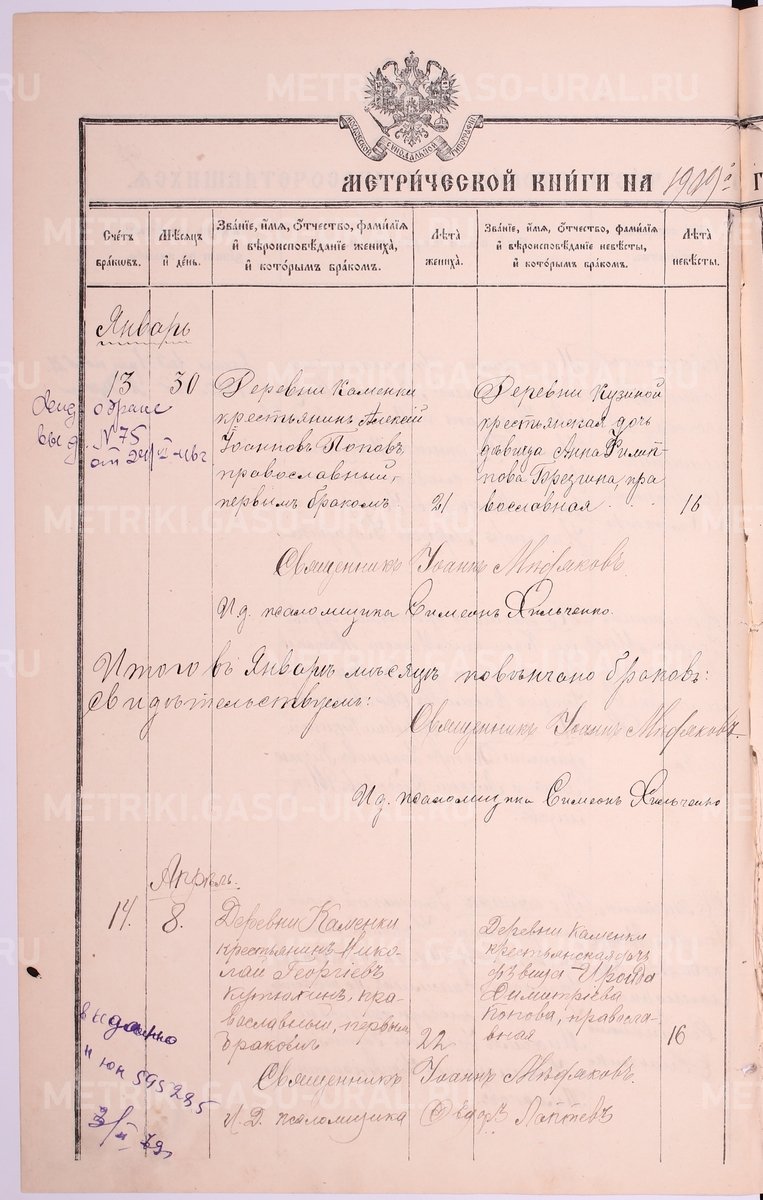 МОСКОВСКОЙ СѴНОДАЛЬНОЙ ТИПОГРАФІИ
МЕТРИЧЕСКОЙ КНИГИ НА 1919 г. Г
Счетъ браковъ.
Мѣсяцъ и день.
Званіе, имя, отчество, фамилія и вѣроисповѣданіе жениха, и которымъ бракомъ.
Лѣта жениха.
Званіе, имя, отчество, фамилія и вѣроисповѣданіе невѣсты, и которымъ бракомъ.
Лѣта невѣсты.
Январь
13 30
Деревни Каменки
крестьянинъ Алексій
Іоанновъ Поповъ,
православный,
первымъ бракомъ. 21
Деревни Кузиной
крестьянская дочь
дѣвица Анна Филип-
пова Березина, пра
вославная 16
выд.
№ 75
от 24/VI-46г
Священникъ Іоаннъ Мидяковъ.
И д. псаломщика Симеонъ Хильченко.
Итого въ Январѣ мѣсяцѣ повѣнчано браковъ:
свидѣтельствуемъ:
Священникъ Іоаннъ Мидяковъ.
И д. псаломщика Симеонъ Хильченко
Апрѣль.
14. 8.
Деревни Каменки
крестьянинъ Нико-
лай Георгіевъ
Кутюхинъ, пра-
вославный, первым
бракомъ 22
Деревни Каменки
крестьянская дочь
дѣвица Ироида
Димитріева
Попова, правосла-
вная 16
выдано
II юп 595295
3/II 39г
Священникъ Іоаннъ Мидяковъ.
И. Д. псаломщика Ѳедоръ Лаптевъ
METRIKI.GASO-URAL.RU